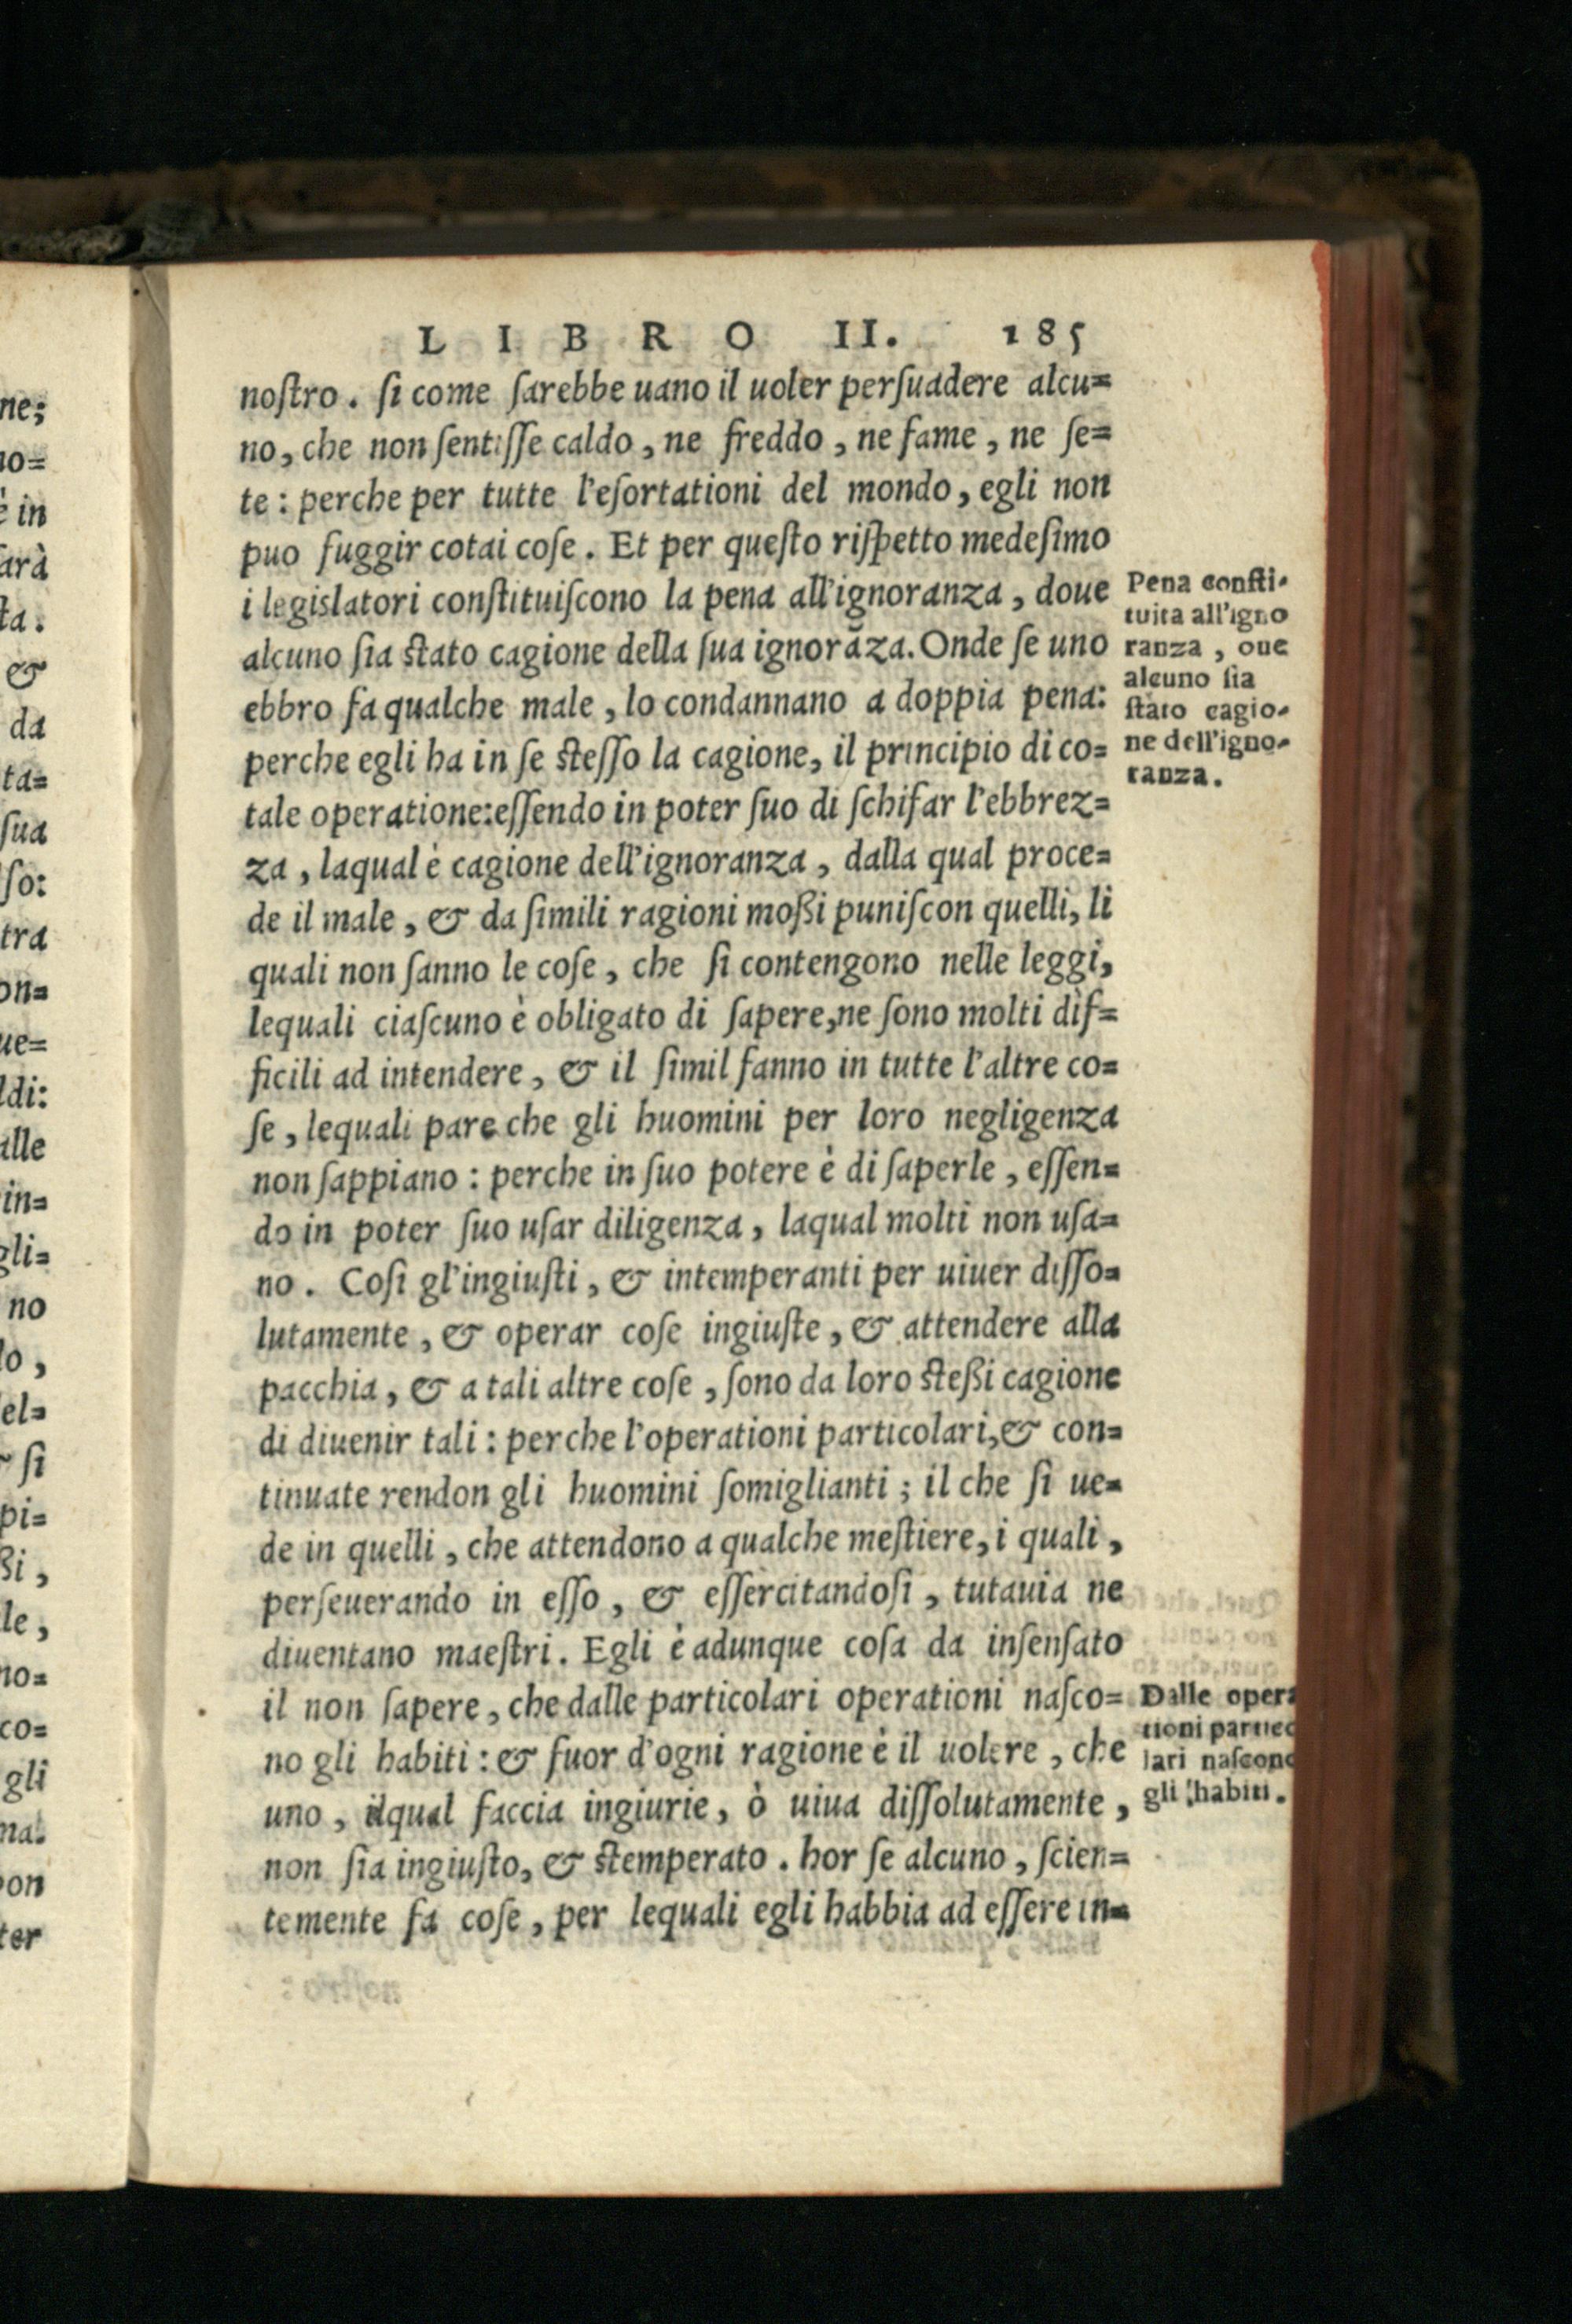 LIBRO II. 185
noſtro. ſi come ſarebbe uano il uoler perſuadere alcu=
no, che non ſentiſſe caldo, ne freddo, ne fame, ne ſe=
te: perche per tutte l'eſortationi del mondo, egli non
puo fuggir cotai coſe. Et per queſto riſpetto medeſimo
i legislatori conſtituiſcono la pena all'ignoranza, doue
alcuno ſia ſtato cagione della ſua ignorãza. Onde ſe uno
ebbro fa qualche male, lo condannano a doppia pena:
perche egli ha in ſe ſteſſo la cagione, il principio di co=
tale operatione: eſſendo in poter ſuo di ſchifar l'ebbrez=
za, laqual è cagione dell'ignoranza, dalla qual proce=
de il male, & da ſimili ragioni moßi puniſcon quelli, li
quali non ſanno le coſe, che ſi contengono nelle leggi,
lequali ciaſcuno è obligato di ſapere, ne ſono molti dif=
ficili ad intendere, & il ſimil fanno in tutte l'altre co=
ſe, lequali pare che gli huomini per loro negligenza
non ſappiano: perche in ſuo potere è di ſaperle, eſſen=
do in poter ſuo uſar diligenza, laqual molti non uſa=
no. Coſi gl'ingiuſti, & intemperanti per uiuer diſſo=
lutamente, & operar coſe ingiuſte, & attendere alla
pacchia, & a tali altre coſe, ſono da loro ſteßi cagione
di diuenir tali: perche l'operationi particolari, & con=
tinuate rendon gli huomini ſomiglianti; il che ſi ue=
de in quelli, che attendono a qualche meſtiere, i quali,
perſeuerando in eſſo, & eſſercitandoſi, tutauia ne
diuentano maeſtri. Egli è adunque coſa da inſenſato
il non ſapere, che dalle particolari operationi naſco=
no gli habiti: & fuor d'ogni ragione è il uolere, che
uno, ilqual faccia ingiurie, ò uiua diſſolutamente,
non ſia ingiuſto, & ſtemperato. hor ſe alcuno, ſcien=
temente fa coſe, per lequali egli habbia ad eſſere in=
Pena conſti-
tuita all'igno
ranza, oue
alcuno ſia
ſtato cagio-
ne dell'igno-
ranza.
Dalle opera
tioni partico
lari naſcono
gli habiti.
ne;
no=
è in
ſarà
ta.
&
da
ta=
ſua
ſo:
tra
on=
ue=
ldi:
alle
in=
gli=
no
lo,
el=
ſi
pi=
ßi,
le,
no=
co=
gli
na.
on
ter